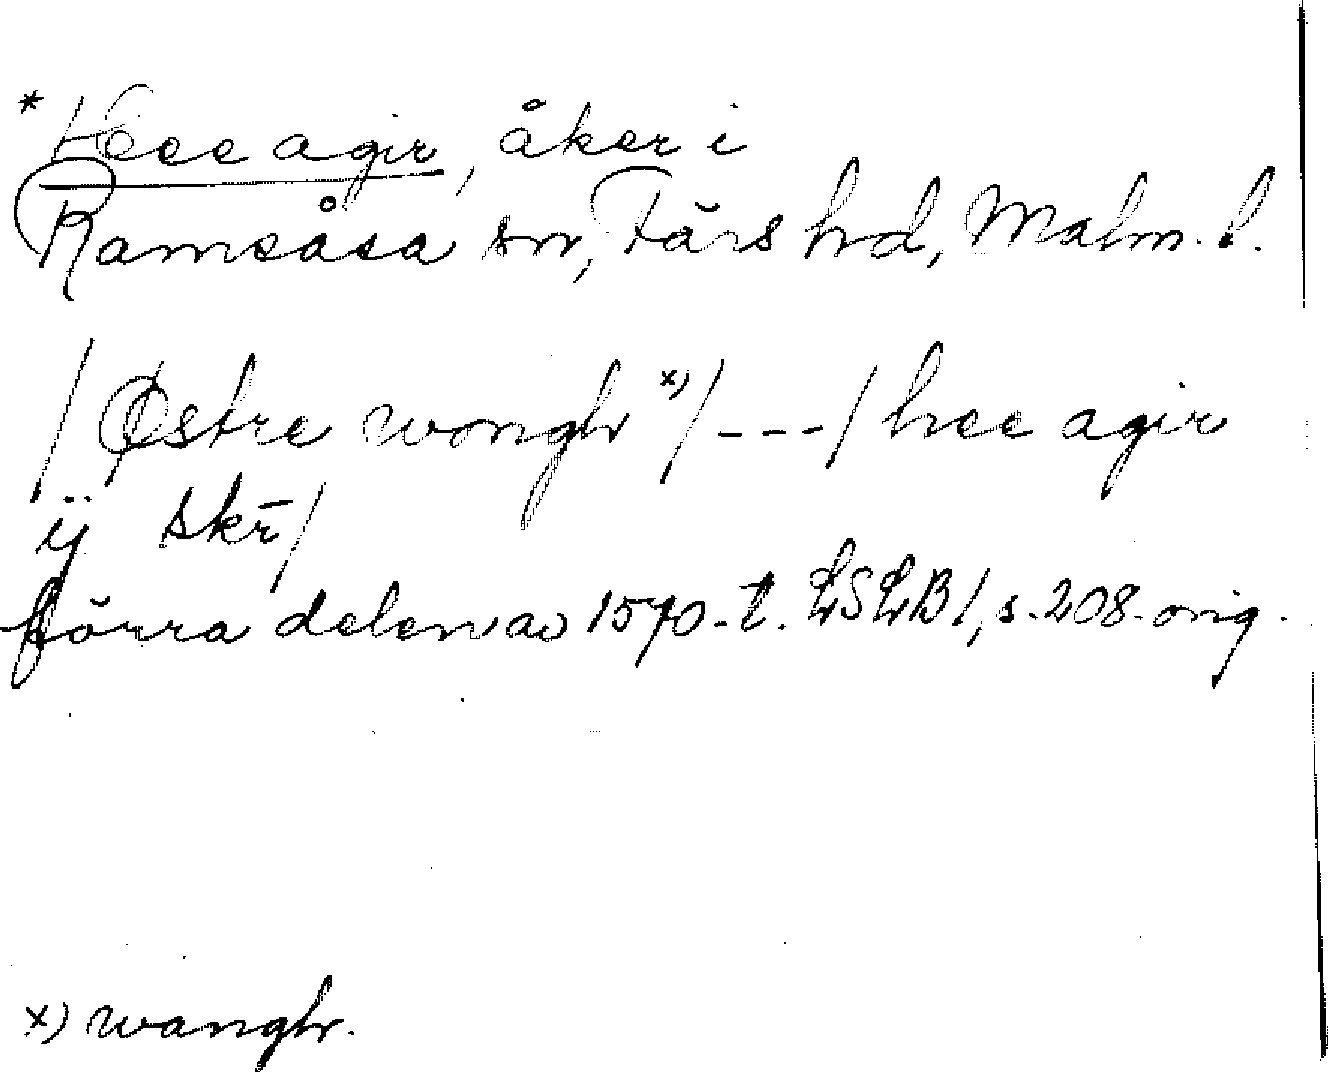 * Heee agir, åker i
Ramsåsa sn, Färs hd, Malm. l.
/Østre wongh x)/---/hee agir
ÿ skr̄/
förra delen av 1570-t. LSLB 1, s. 208. orig.
x) wangh.